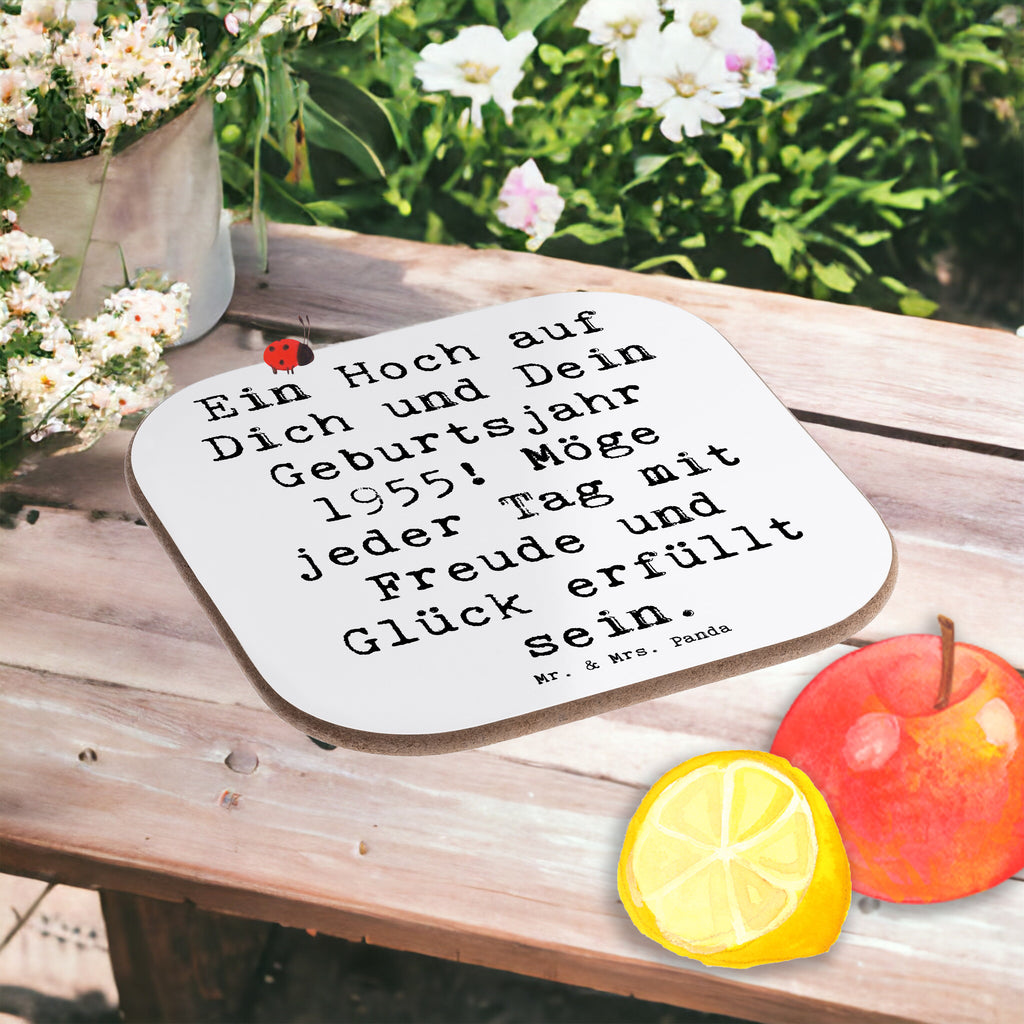 Ein Hoch auf
Dich und Dein
Geburtsjahr
1955! Möge
jeder Tag mit
Freude und
Glück erfüllt
sein.
Mr. & Mrs. Panda